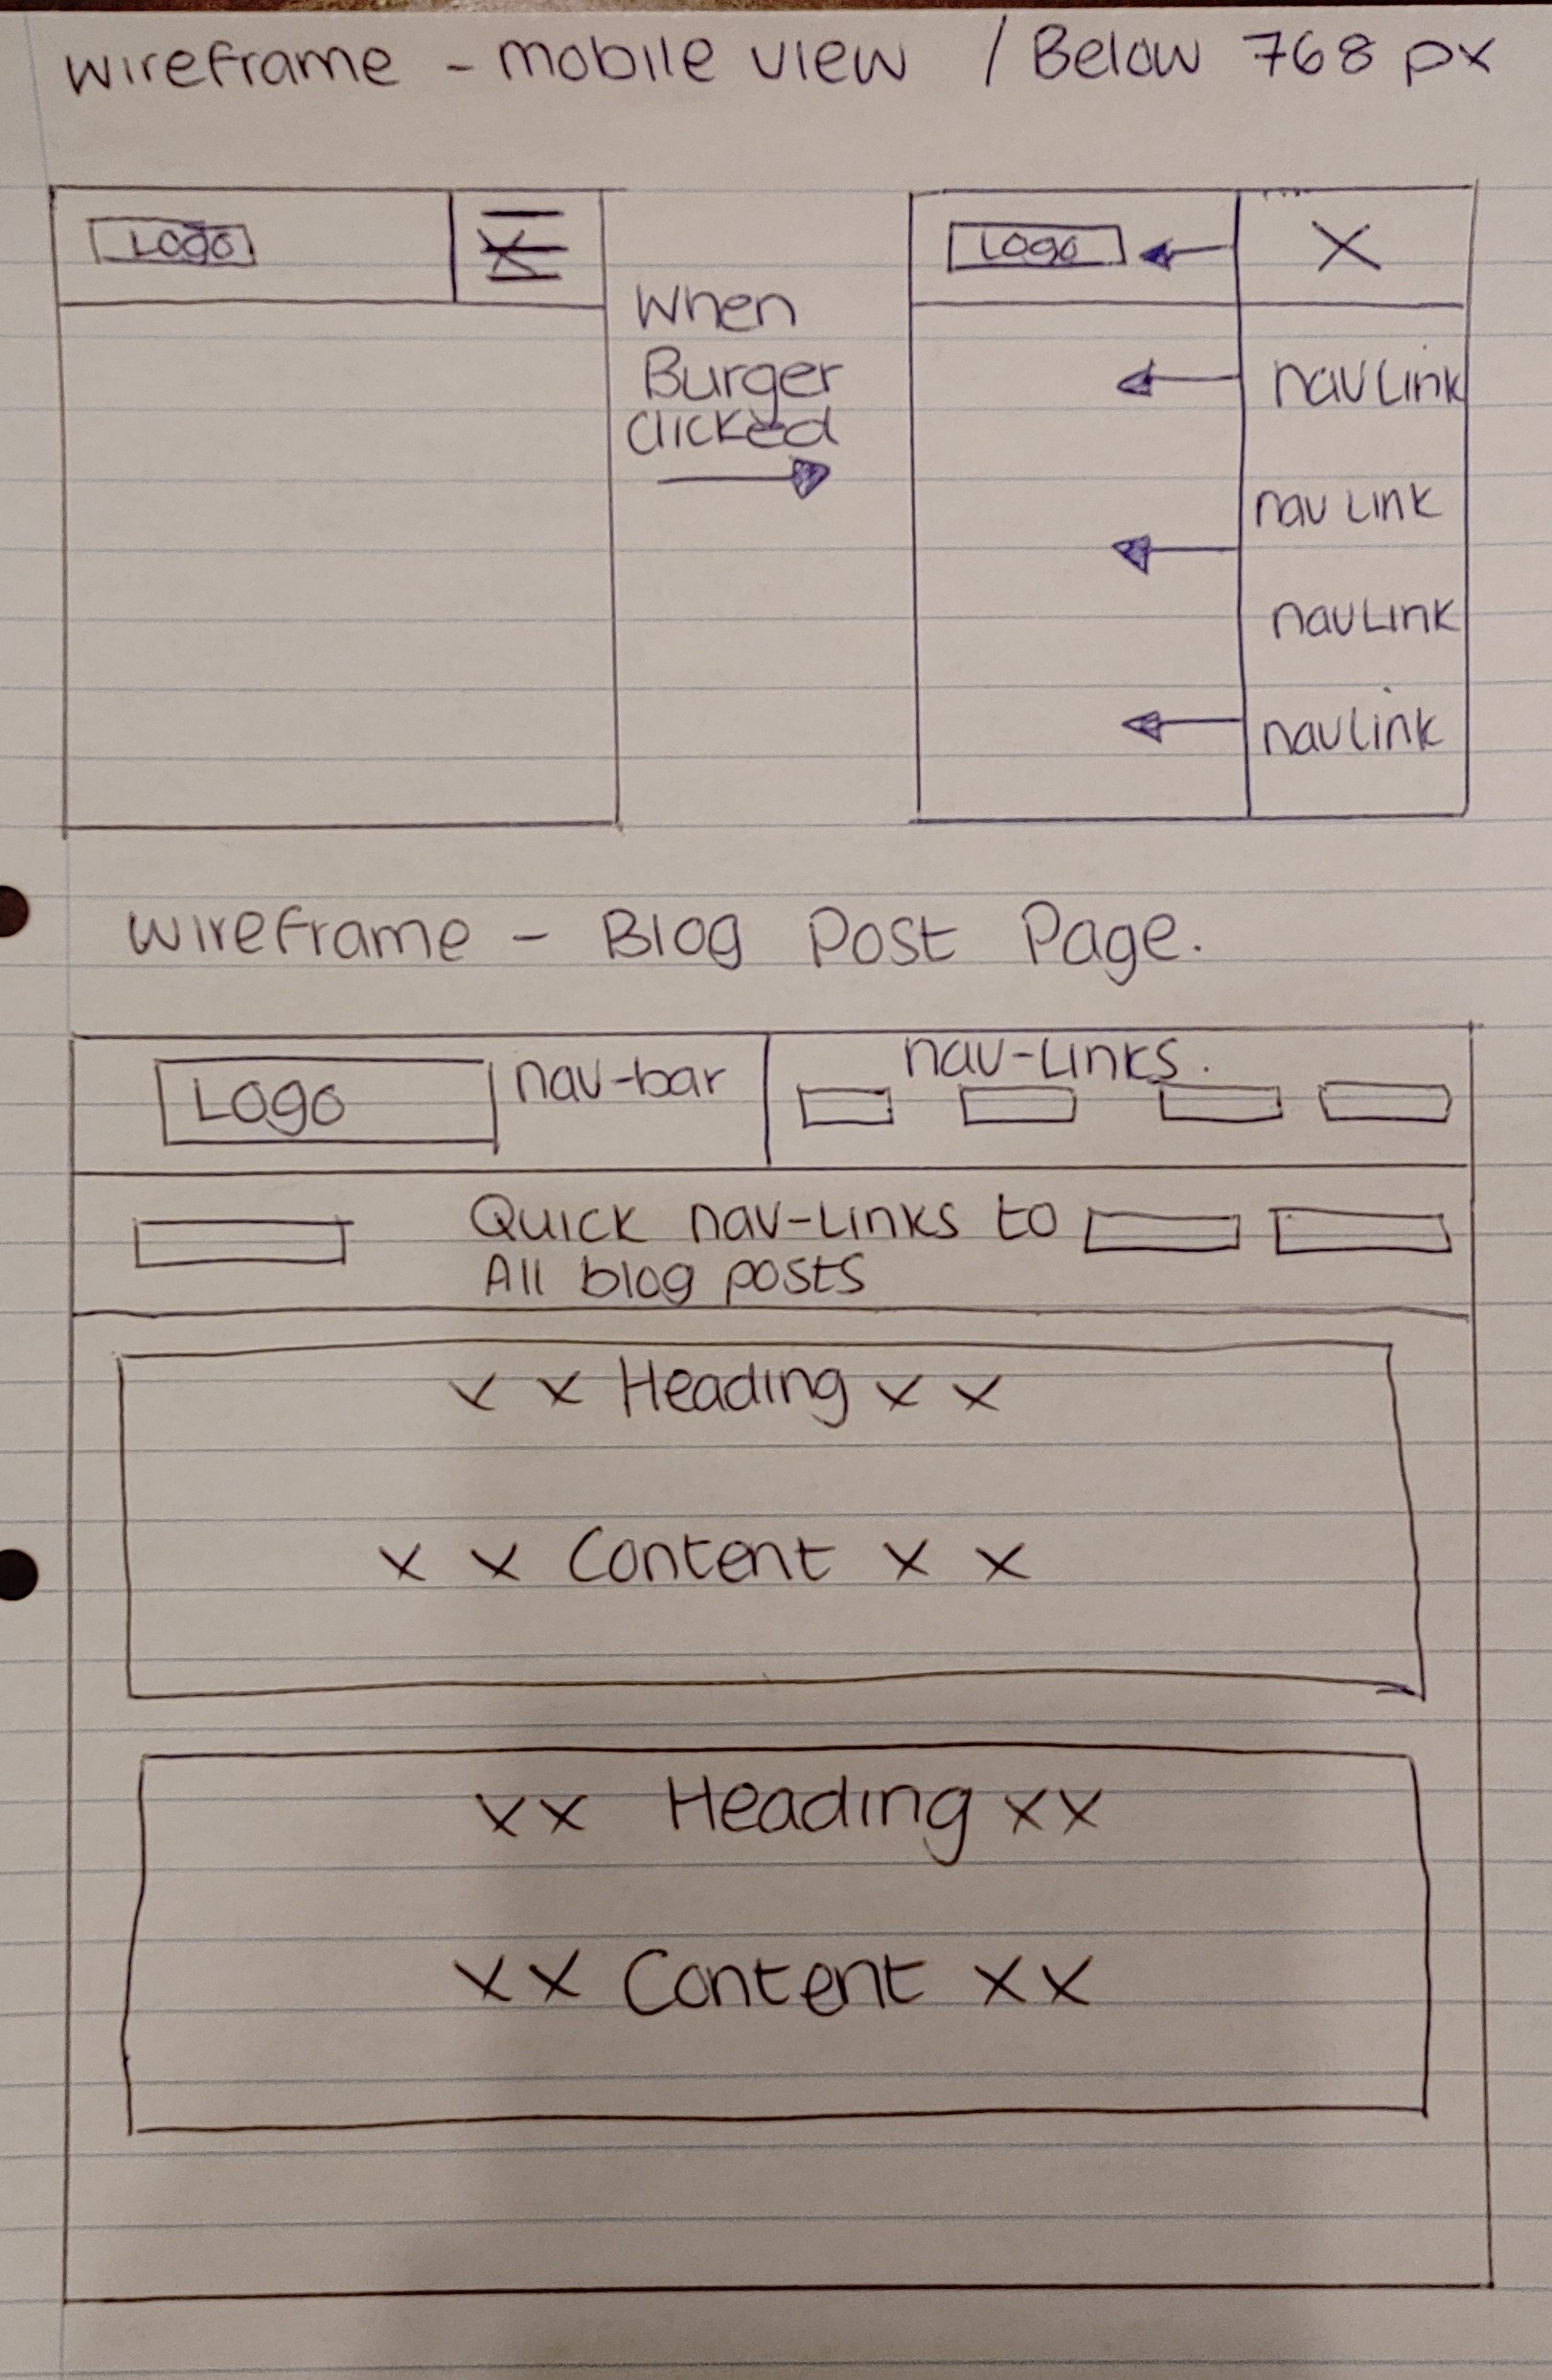 Wireframe - mobile view / Below 768 px
Logo
When
Burger
clicked
Logo
X
nav Link
nav Link
nav Link
nav link
Wireframe - Blog Post Page.
Logo
nav-bar
nav-Links.
Quick nav-Links to
All blog posts
x x Heading x x
x x Content x x
xx Heading xx
xx Content xx